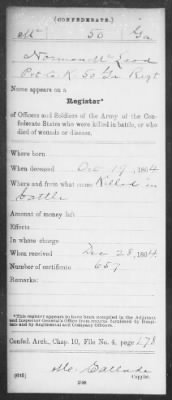 (CONFEDERATE.)
Mc 50 Ga
Norman McLeod
Pvt Co. K. 50 Ga Regt
Name appears on a
Register*
of Officers and Soldiers of the Army of the Con-
federate States who were killed in battle, or who
died of wounds or disease.
Where born
When deceased Oct 19, 1864
Where and from what cause Killed in
battle
Amount of money left
Effects
In whose charge
When received Dec 28, 1864
Number of certificate 657
Remarks:
*This registry appears to have been compiled in the Adjutant
and Inspector General's Office from returns furnished by Hospi-
tals and by Regimental and Company Officers.
Confed. Arch., Chap. 10, File No. 4, page 278
Copyist.